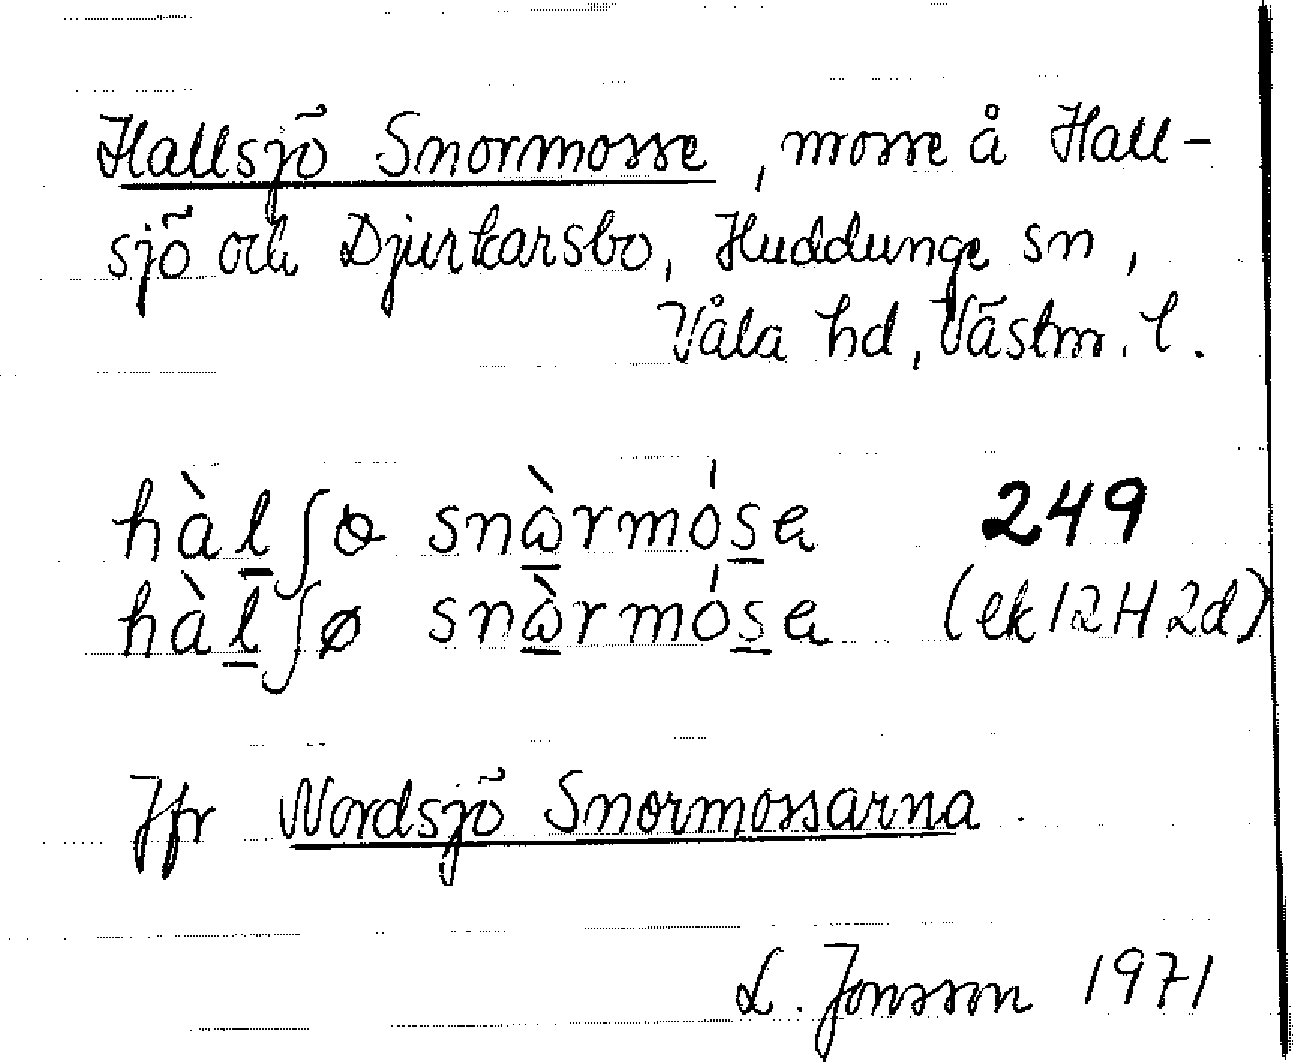 Hallsjö Snormosse, mosse å Hall-
sjö och Djurkarsbo, Huddunge sn,
Våla hd, Västm. l.
249
(ek 12H 2d)
Jfr Nordsjö Snormossarna.
L. Jonsson 1971